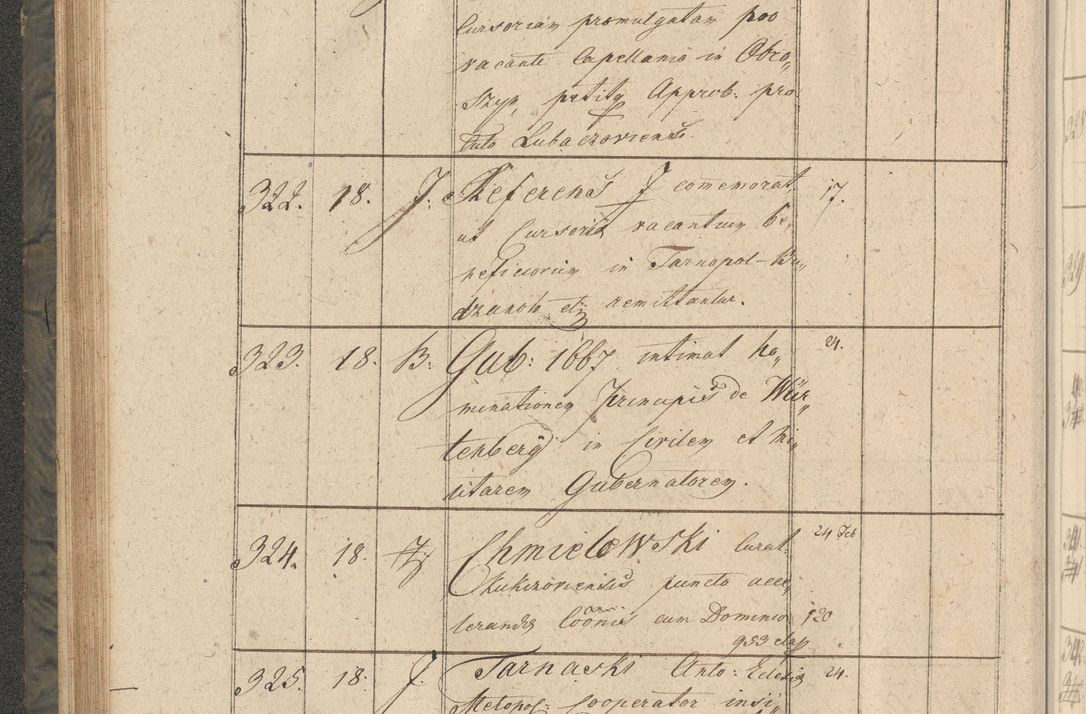 Cursoriam promulgatam pro
vacante Capellania in Obro„
szyn, petitq Approb. pro
tulo Lubaczoviensi.
322. 18. J. Referens J comemorat 17.
ut Cursoria vacantium be„
neficiorum in Tarnopol – Bu„
dzanow etz remittantur.
323. 18. B. Gub: 1667 intimat no„ 24.
minationem Principis de Wür„
tenberg in Civilem et Mi„
litarem Gubernatorem.
324. 18. Chmielowski Curat. 24 Feb
Kukizoviensis puncto acce„
lerandæ Coönis cum Dominio 120
953 elap
325. 18. J. Tarnaski Anto: Eclesiæ 24.
Metopol: Cooperator insi„